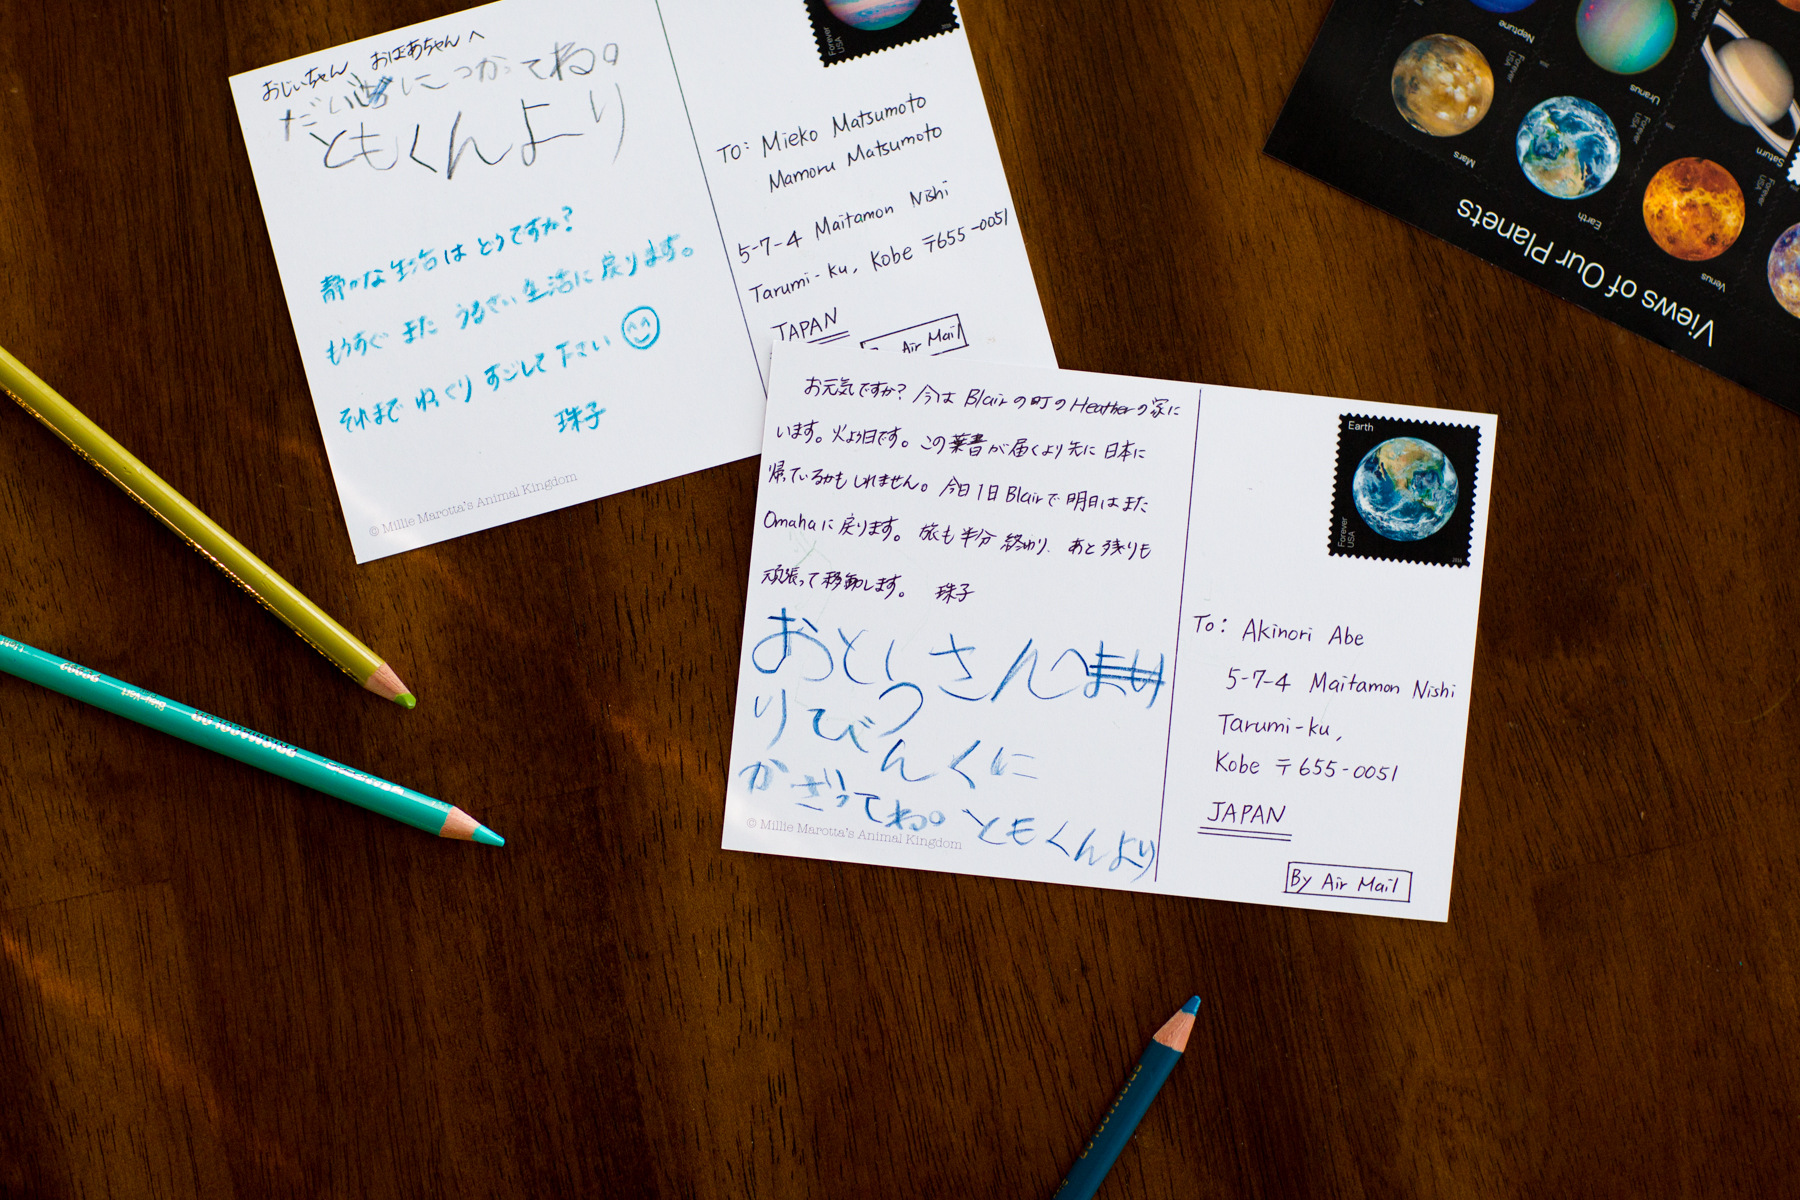 おじいちゃん おばあちゃんへ
だい につかってね。
ともくんより
静かな生活はどうですか?
もうすぐ また うるさい生活に戻ります。
それまで ゆっくり すごして下さい
珠子
© Millie Marotta's Animal Kingdom
Forever
USA
TO: Mieko Matsumoto
Mamoru Matsumoto
5-7-4 Maitamon Nishi
Tarumi-ku, Kobe 〒655-0051
JAPAN
Air Mail
お元気ですか? 今は Blairの町のHeatherの家に
います。火よう日です。この葉書が届くより先に日本に
帰っているかもしれません。今日1日Blairで明日はまた
Omahaに戻ります。旅も半分終わり、あと残りも
頑張って移動します。 珠子
おとうさんへ
りびんぐに
かざってね。ともくんより
© Millie Marotta's Animal Kingdom
Earth
Forever
USA
To: Akinori Abe
5-7-4 Maitamon Nishi
Tarumi-ku,
Kobe 〒655-0051
JAPAN
By Air Mail
Views of Our Planets
Mars
Earth
Venus
Neptune
Uranus
Saturn
Forever
USA
Forever
USA
Forever
USA